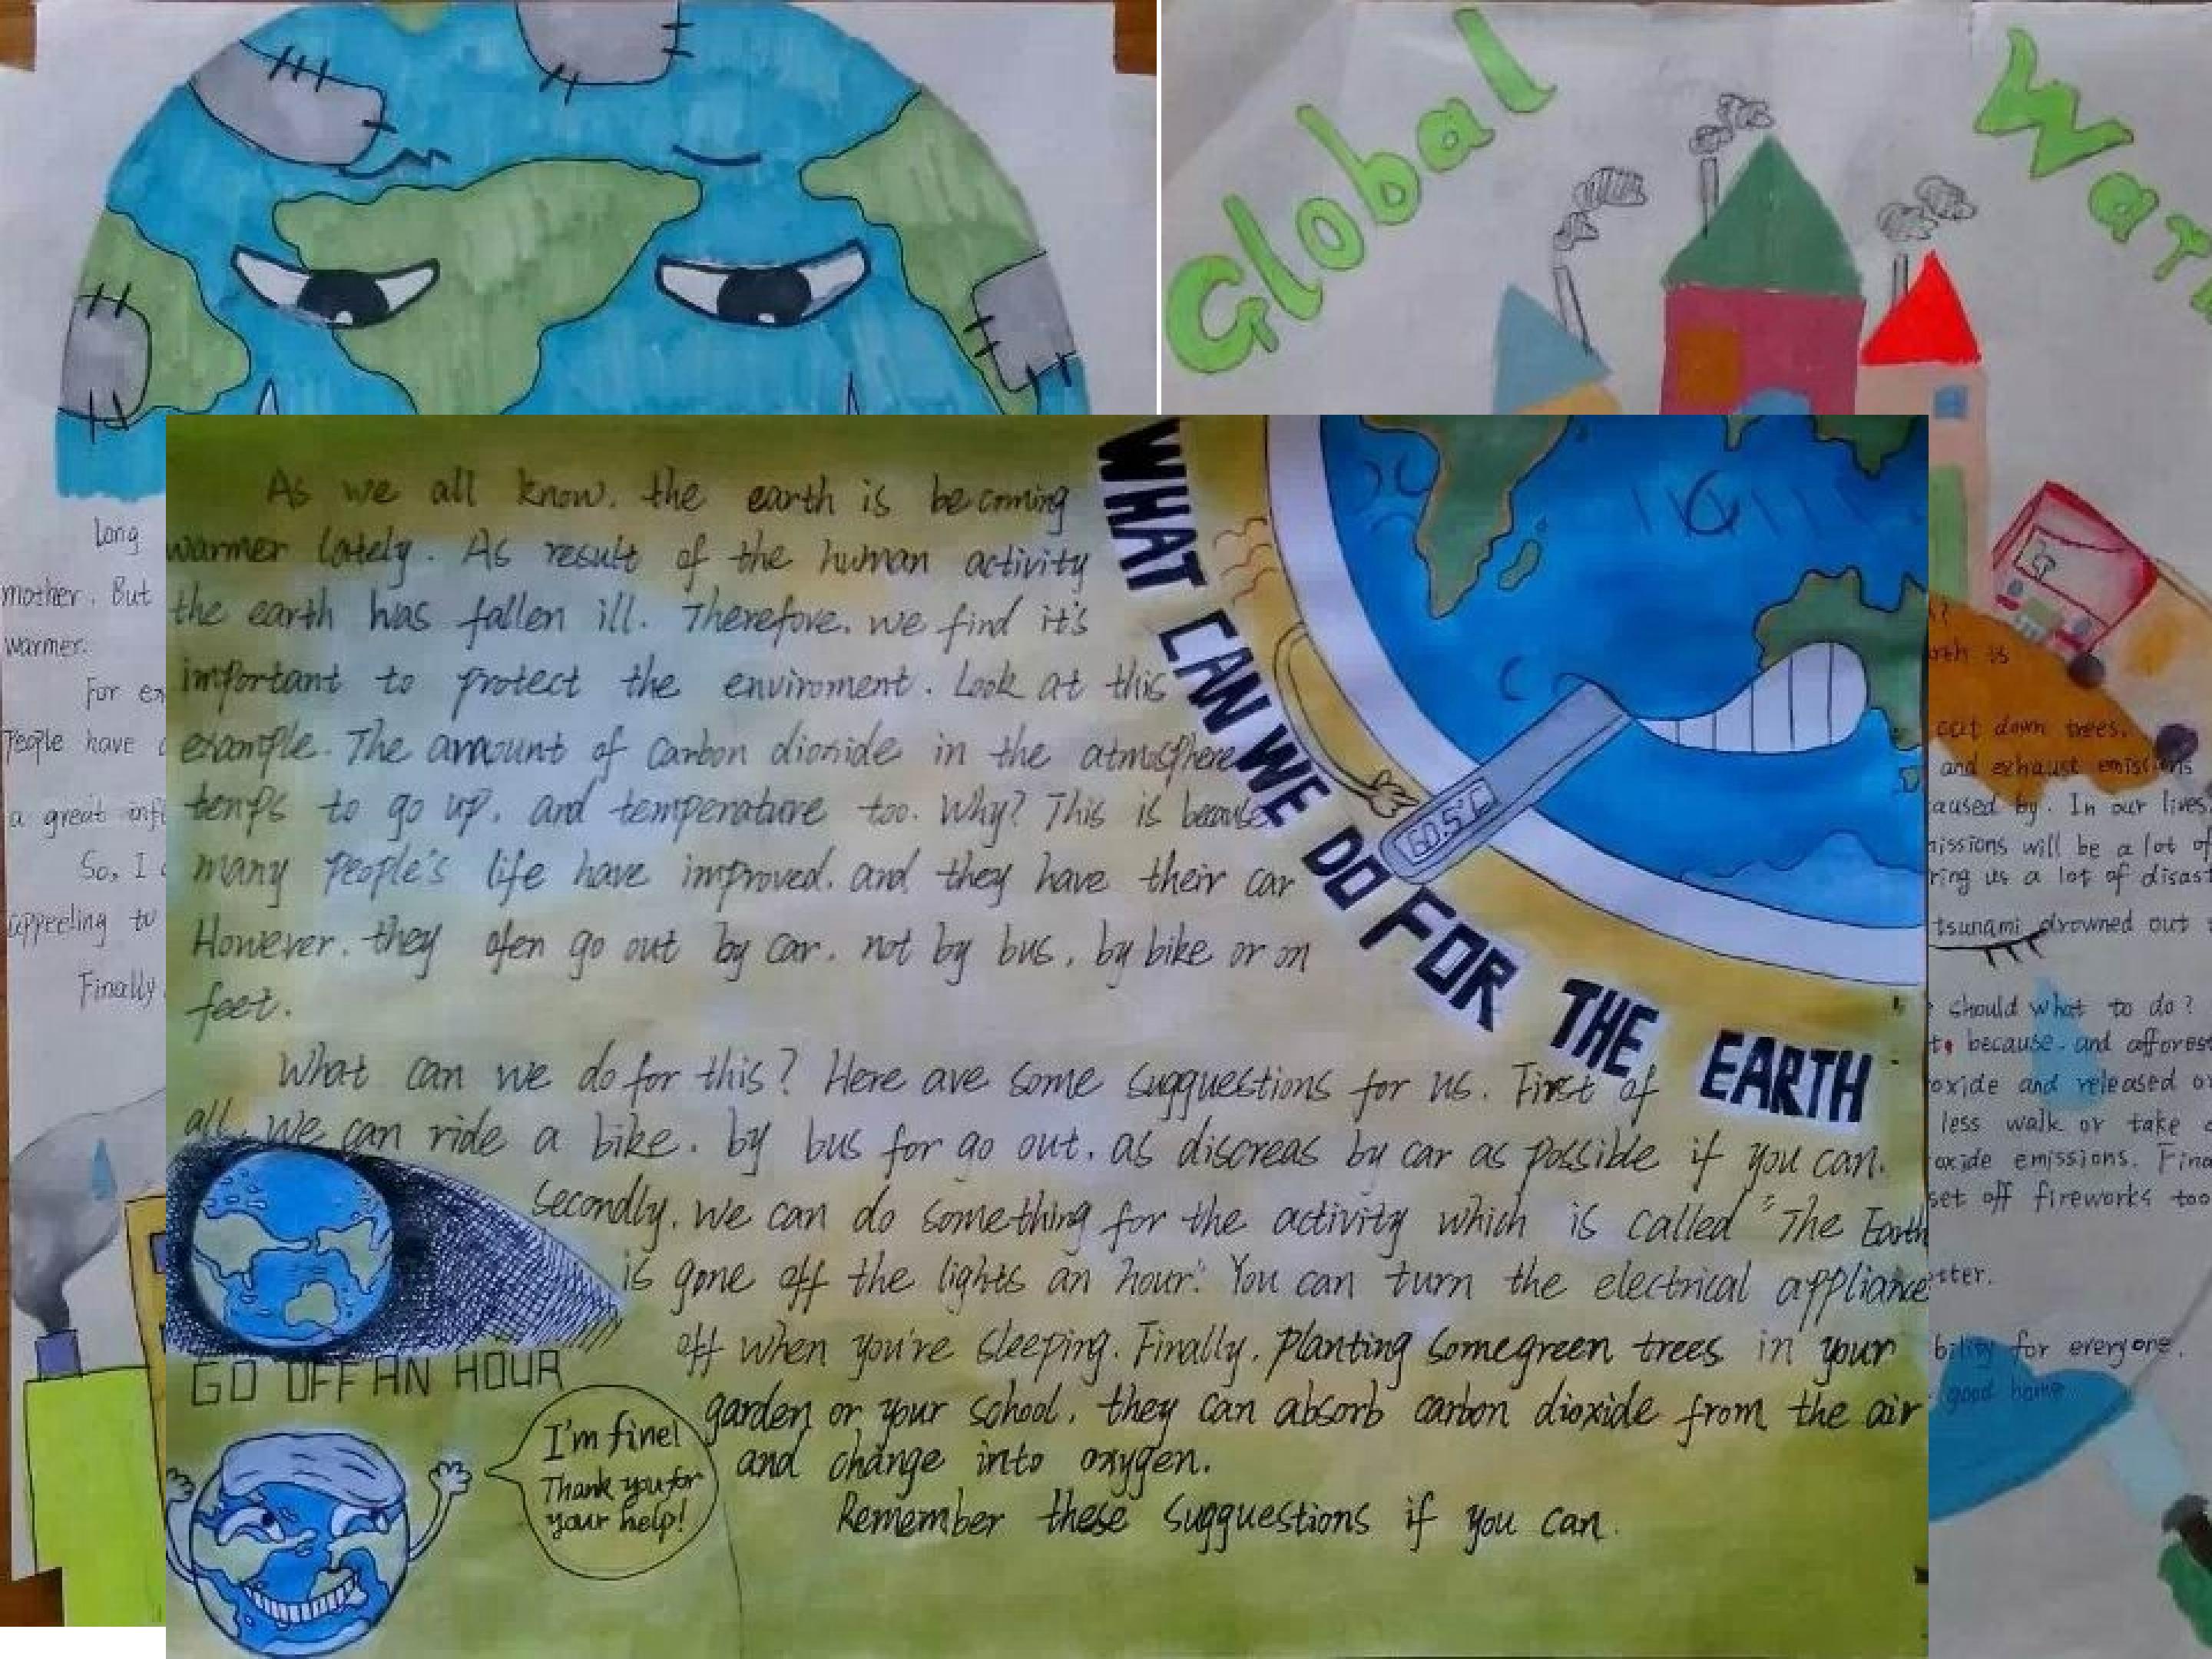 Global War
Long
mother. But
warmer.
For ex
People have
a great inf
So, I
appeeling to
Finally
As we all know. the earth is becoming
warmer lately. As result of the human activity
the earth has fallen ill. Therefore. we find it's
important to protect the enviroment. Look at this
example. The amount of carbon dioxide in the atmosphere
temps to go up. and temperature too. Why? This is because
many people's life have improved. and they have their car
However. they ofen go out by car. not by bus. by bike or on
feet.
What can we do for this? Here are some sugguestions for us. First of
all. we can ride a bike. by bus for go out. as discreas by car as possible if you can.
Secondly. we can do something for the activity which is called "The Earth
is gone off the lights an hour." You can turn the electrical appliance
off when you're sleeping. Finally. planting some green trees in your
garden or your school. they can absorb carbon dioxide from the air
and change into oxygen.
Remember these sugguestions if you can.
WHAT CAN WE DO FOR THE EARTH
60.5°C
GO OFF AN HOUR
I'm fine!
Thank you for
your help!
?
rth is
cut down trees.
and exhaust emissions
aused by. In our lives.
issions will be a lot of
ring us a lot of disast
tsunami drowned out
should what to do?
t. because. and afforest
oxide and released o
less walk or take
oxide emissions. Fina
set off fireworks too
tter.
bility for everyone.
good home